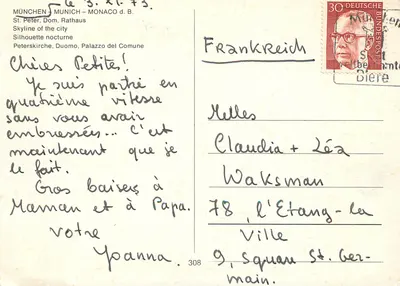 le 3.XI.73.
MÜNCHEN - MUNICH - MONACO d. B.
St. Peter, Dom, Rathaus
Skyline of the city
Silhouette nocturne
Peterskirche, Duomo, Palazzo del Comune
Chères Petites!
Je suis partie en
quatrième vitesse
sans vous avoir
embrassées... C'est
maintenant que je
le fait.
Gros baisers à
Maman et à Papa.
Votre
Yoanna.
308
Frankreich
30
DEUTSCHE BUNDESPOST
München
Biere
Melles
Claudia + Léa
Waksman
78, l'Etang-la
Ville
9, Square St. Ger-
main.